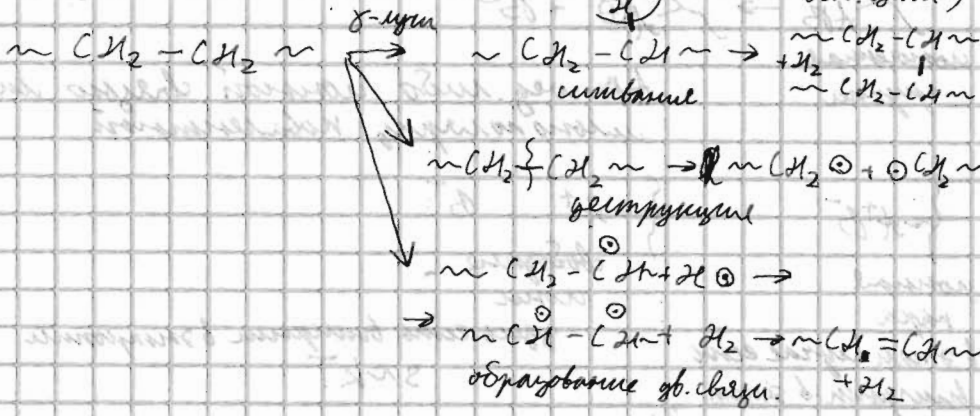 γ-лучи
~ CH₂ – CH₂ ~ → ~ CH₂ – CH ~ → ~ CH₂ – CH ~
+H₂
сшивание
~ CH₂ – CH ~
~ CH₂ CH₂ ~ → ~ CH₂ ⊙ + ⊙ CH₂ ~
деструкция
~ CH₂ – CH~ + H ⊙ →
→ ~ CH – CH~ + H₂ → ~ CH = CH ~
образование дв. связи. + H₂